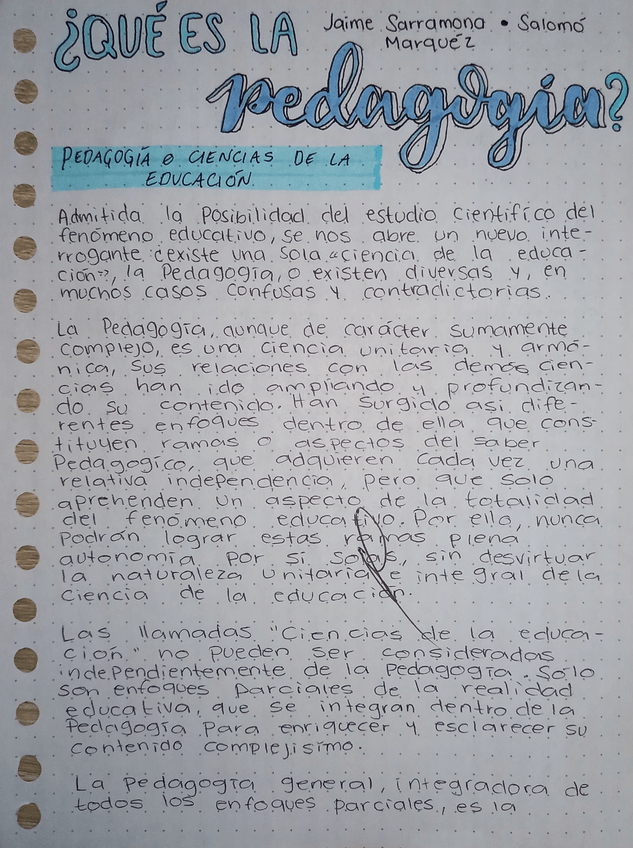 ¿QUÉ ES LA
Jaime Sarramona • Salomó
Marquéz
pedagogía?
PEDAGOGÍA O CIENCIAS DE LA
EDUCACIÓN
Admitida la Posibilidad del estudio científico del
fenómeno educativo, se nos abre un nuevo inte-
rrogante: ¿existe una sola "ciencia de la educa-
ción", la Pedagogía, o existen diversas y, en
muchos casos confusas y contradictorias.
La Pedagogía, aunque de carácter sumamente
complejo, es una ciencia unitaria y armó-
nica, sus relaciones con las demás cien-
cias han ido ampliando y profundizan-
do su contenido. Han surgido asi dife-
rentes enfoques dentro de ella que cons-
tituyen ramas o aspectos del saber
Pedagogico, que adquieren cada vez una
relativa independencia, pero que solo
aprehenden un aspecto de la totalidad
del fenómeno educativo. Por ello, nunca
Podrán lograr estas ramas plena
autonomía por si solas, sin desvirtuar
la naturaleza unitaria e integral de la
ciencia de la educación.
Las llamadas "Ciencias de la educa-
ción" no pueden ser consideradas
independientemente de la Pedagogía. Solo
son enfoques parciales de la realidad
educativa, que se integran dentro de la
Pedagogía para enriquecer y esclarecer su
contenido complejisimo.
La pedagogía general, integradora de
todos los enfoques parciales, es la